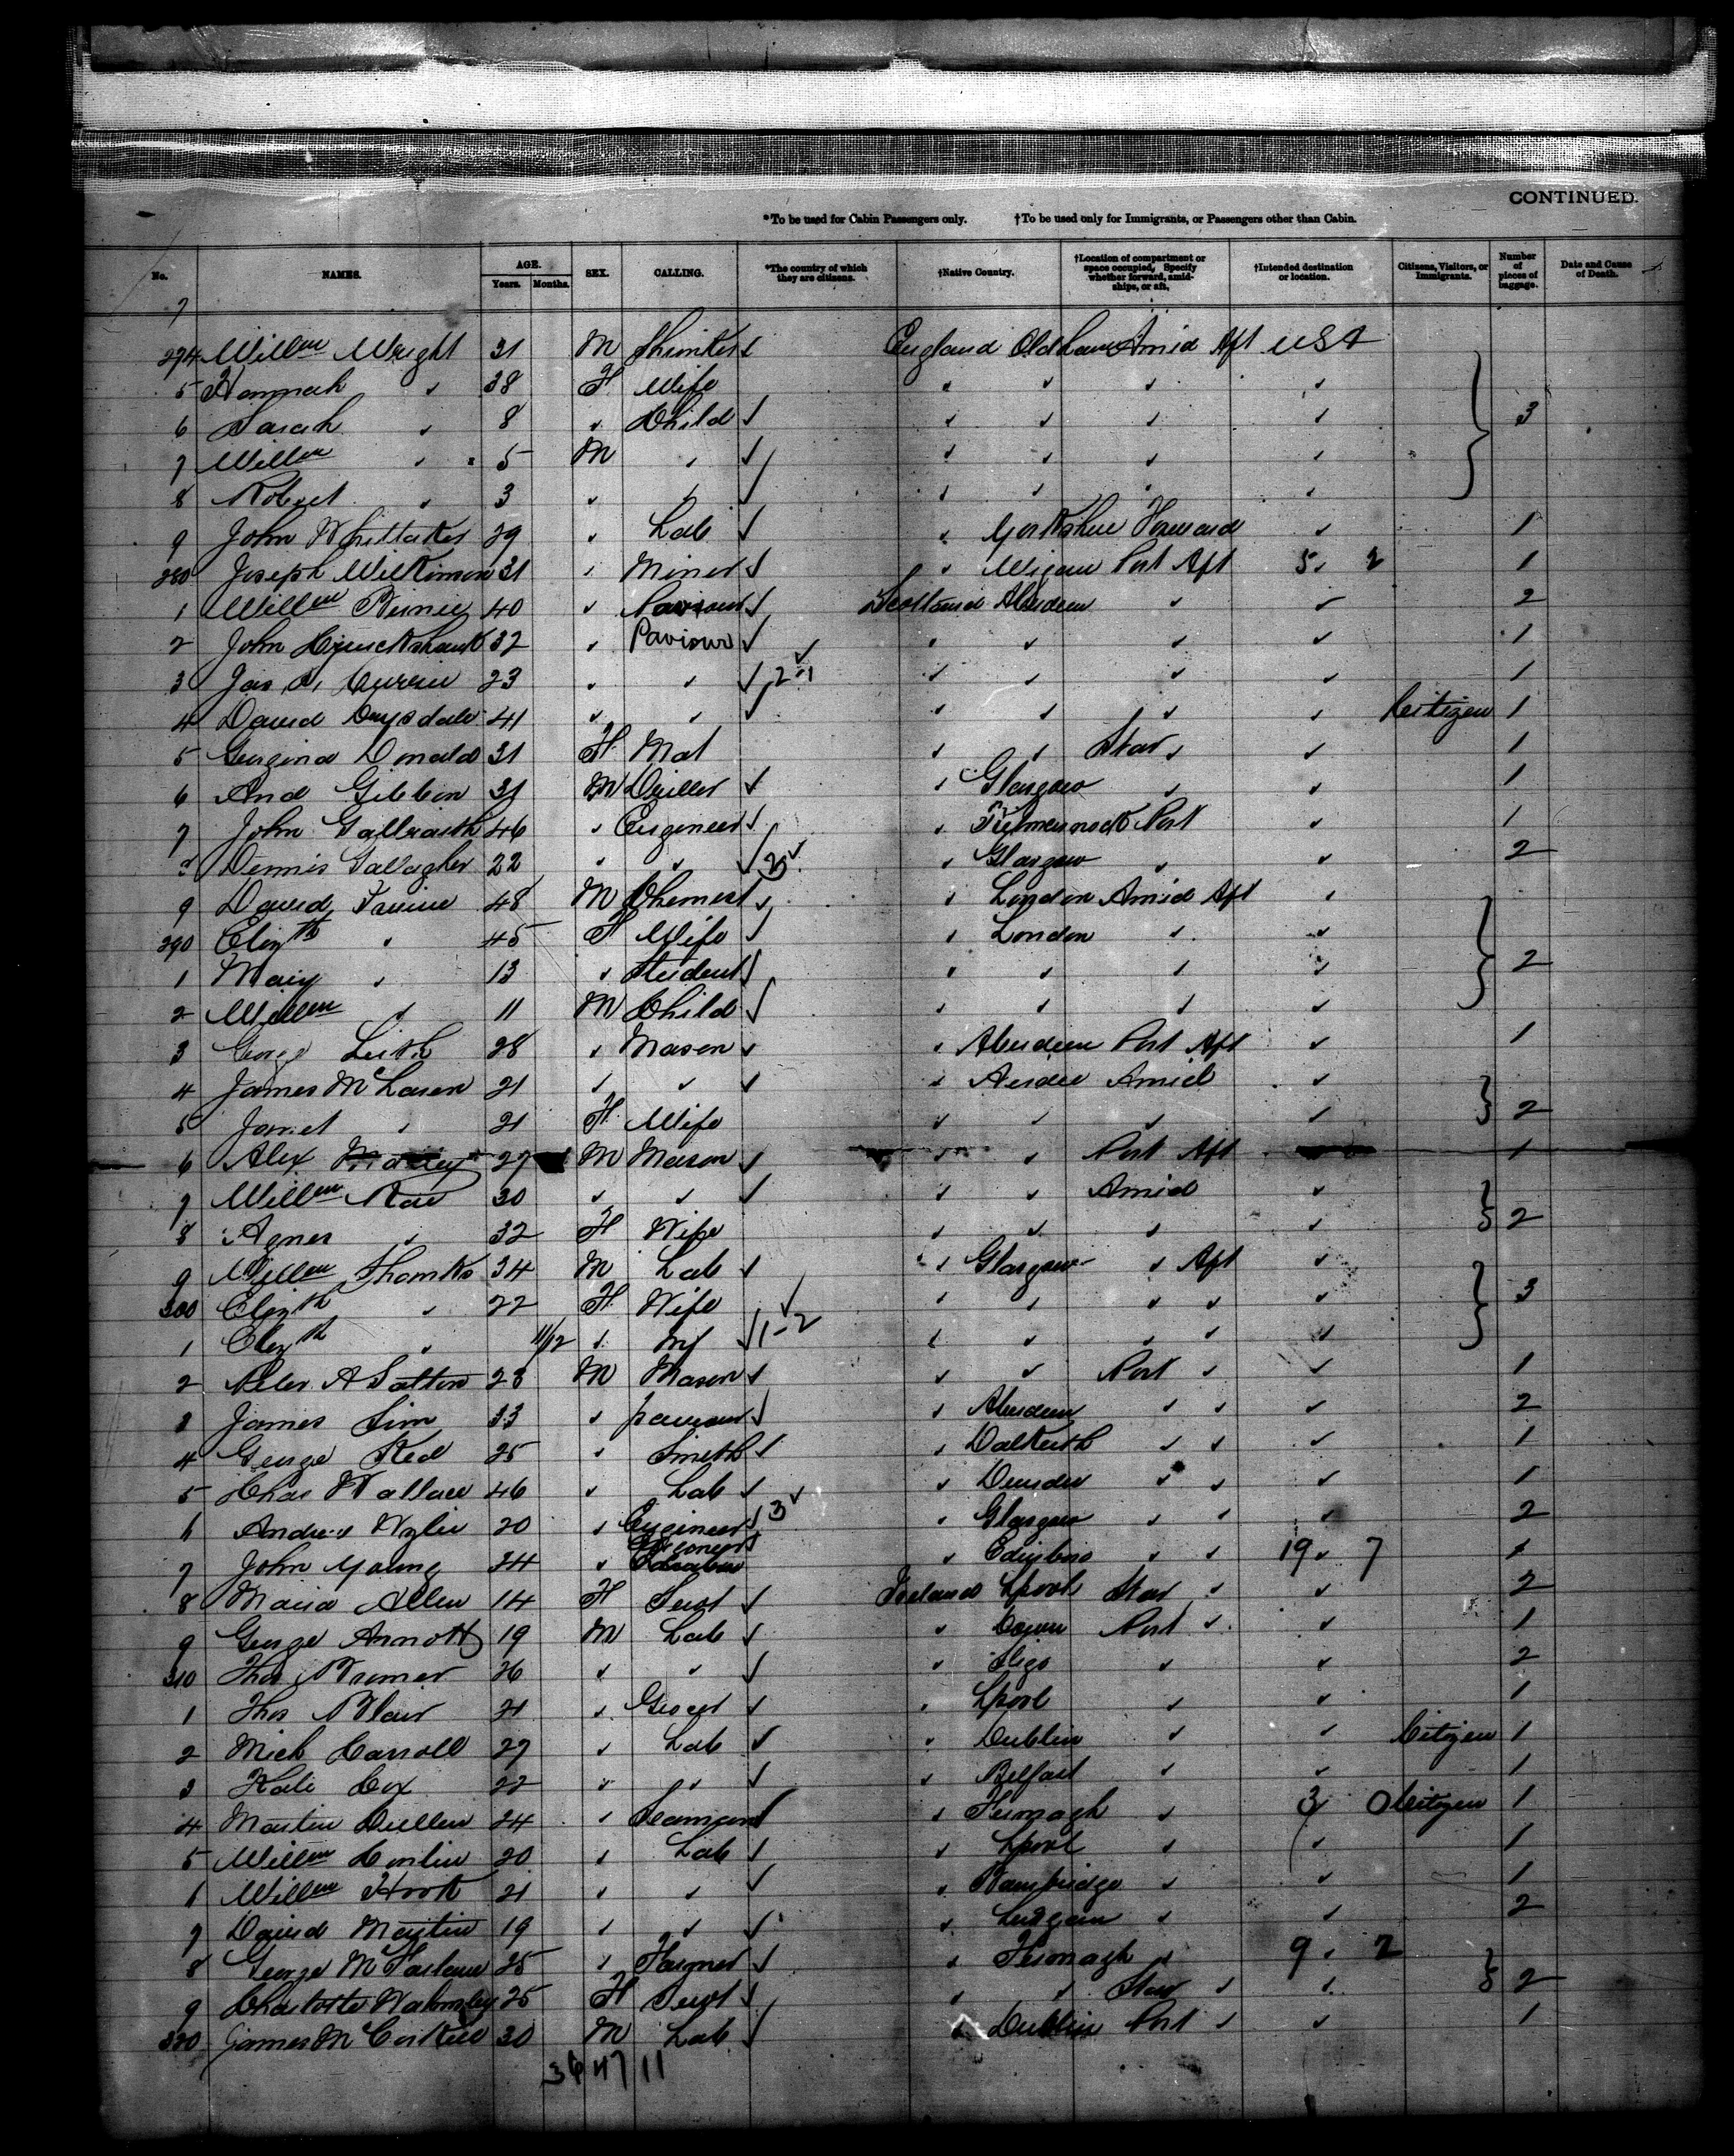 CONTINUED.
*To be used for Cabin Passengers only. †To be used only for Immigrants, or Passengers other than Cabin.
No. NAMES. AGE. Years. Months. SEX. CALLING. *The country of which they are citizens. †Native Country. †Location of compartment or space occupied, Specify whether forward, amidships, or aft, †Intended destination or location. Citizens, Visitors, or Immigrants. Number of pieces of baggage. Date and Cause of Death.
7
274 Willm Wright 31 M ✓ England Oldham Amid Aft USA
5 Hannah " 38 F Wife " " " "
6 Sarah " 8 " Child ✓ " " " " 3
7 Willm " 5 M " ✓ " " " "
8 Robert " 3 " " ✓ " " " "
9 John Whittaker 29 " Lab ✓ " Yorkshire Forward " 1
280 Joseph Wilkinson 31 " Miner ✓ " Wigan Port Aft 5 " 2 1
1 Willm 40 " Paviour ✓ Scotland Aberdeen " " 2
2 John Cruickshank 32 " Paviour ✓ " " " " 1
3 Jas 23 " " ✓ 2-1 ✓ " " " " 1
4 David Drysdale 41 " " ✓ " " " " Citizen 1
5 Georgina Donald 31 F Mat " " Star " " 1
6 And Gibbon 31 M Driller ✓ " Glasgow " " 1
7 John Galbraith 46 " Engineer ✓ " Kilmarnock Port " 1
8 Dennis Gallagher 22 " " ✓ 3 ✓ " Glasgow " " 2
9 David 48 M Chemist ✓ " London Amid Aft "
290 Elizth " 45 F Wife ✓ " London " "
1 Mary " 13 " Student ✓ " " " " 2
2 Willm " 11 M Child ✓ " " " "
3 George Leith 28 " Mason ✓ " Aberdeen Port Aft " 1
4 James McLaren 21 " " ✓ " Amid "
5 Janet " 21 F Wife " " " " 2
6 Alex 27 M Mason ✓ " " Port Aft 1
7 Willm Rae 30 " " ✓ " " Amid "
8 Agnes " 32 F Wife " " " " 2
9 Willm 34 M Lab ✓ " Glasgow " Aft "
300 Elizth " 22 F Wife " " " " " 3
1 Elizth " 11/12 " Inf ✓ 1-2 ✓ " " " " "
2 28 M Mason ✓ " " Port " " 1
3 James Sim 33 " paviour ✓ " Aberdeen " " " 2
4 George 25 " Smith ✓ " Dalkeith " " " 1
5 Chas Wallace 46 " Lab ✓ " Dundee " " " 1
6 Andrew Wylie 20 " Engineer ✓ 3 ✓ " Glasgow " " " 2
7 John Young 34 " Engineer ✓ " Edinboro " " 19 " 7 1
8 Maria Allen 14 F Servt ✓ Ireland Lpool Star " " 2
9 George Arnott 19 M Lab ✓ " Port " " 1
310 Thos 26 " " ✓ " Sligo " " 2
1 Thos Blair 21 " Grocer ✓ " Lpool " " 1
2 Mich Carroll 27 " Lab ✓ " Dublin " " Citizen 1
3 Cox 22 " " ✓ " Belfast " " 1
4 Martin 24 " Seaman ✓ " " 3 0 Citizen 1
5 Willm Conlin 20 " Lab ✓ " Lpool " " 1
6 Willm Hook 21 " " ✓ " " " 1
7 David Martin 19 " " ✓ " Lurgan " " 2
8 George McFarlane 25 " Farmer ✓ " " 9 " 2
9 Charlotte Walmsley 25 F Servt ✓ " " Star " " 2
320 James McCorkell 30 M Lab ✓ " Dublin Port " " 1
36 47 11